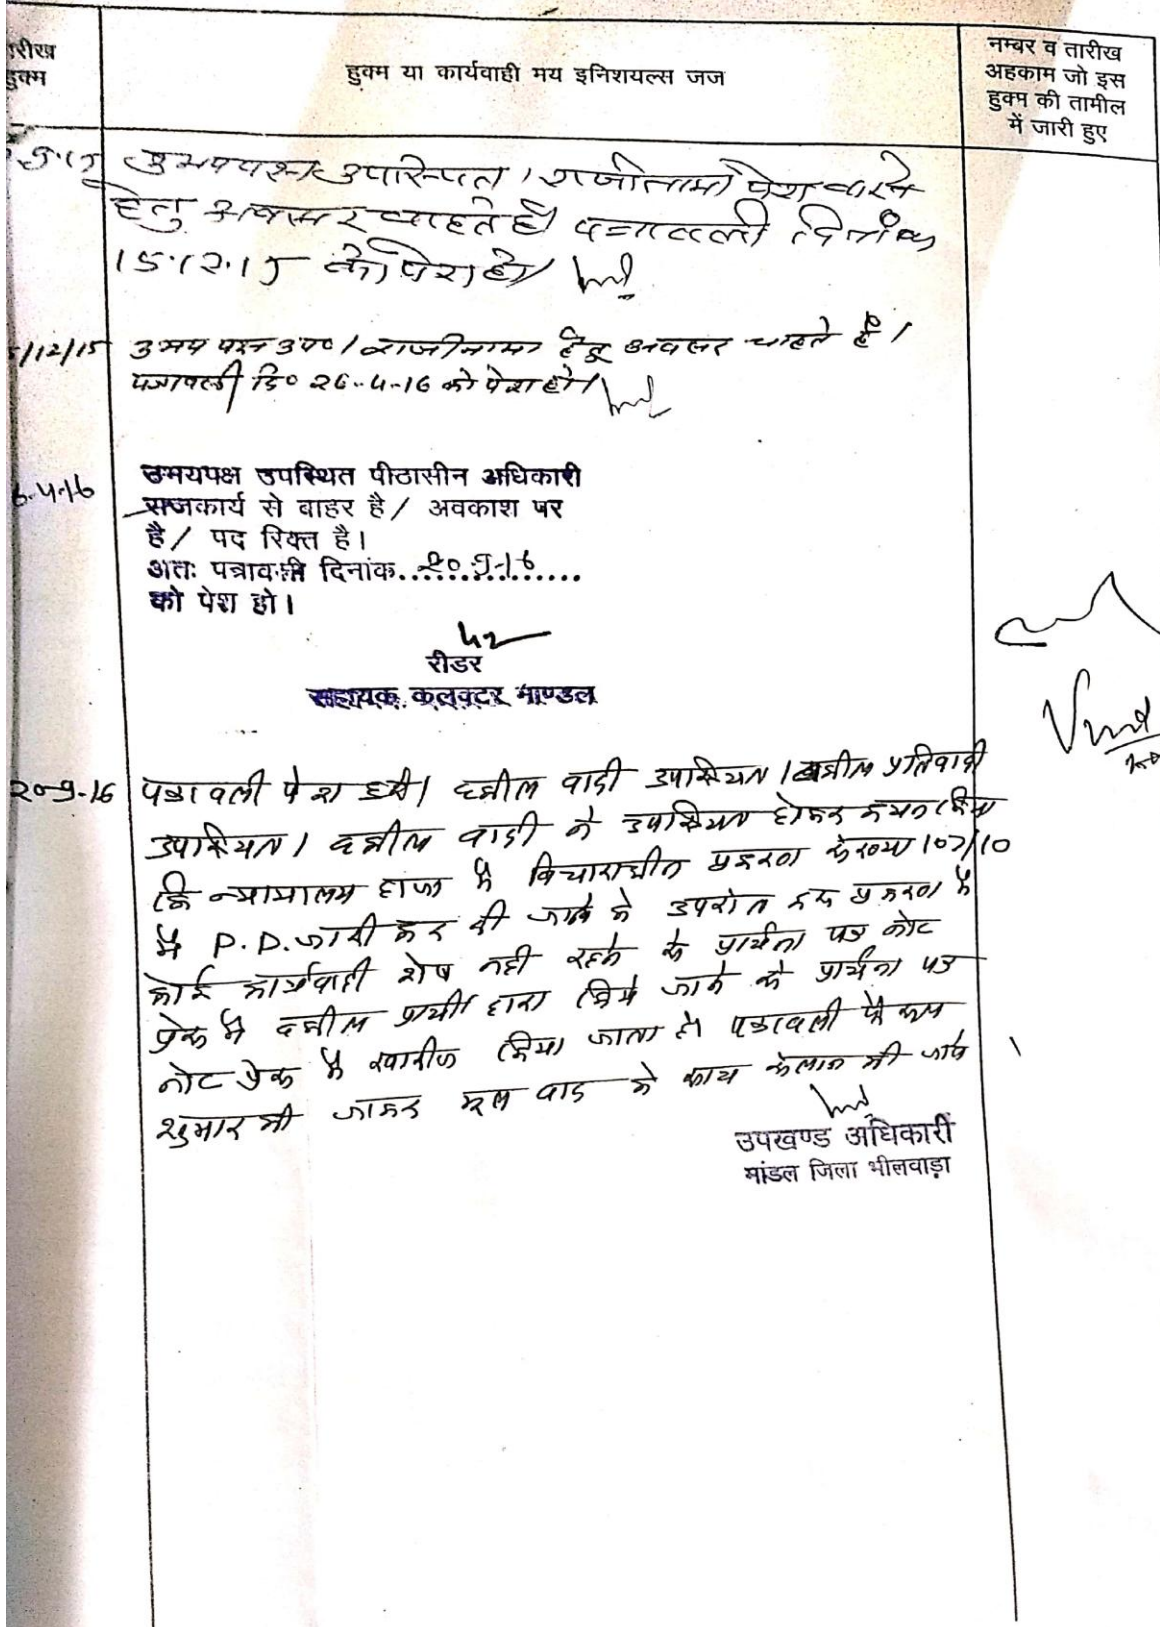 तारीख
हुक्म
हुक्म या कार्यवाही मय इनिशयल्स जज
नम्बर व तारीख
अहकाम जो इस
हुक्म की तामील
में जारी हुए
उभयपक्ष उपस्थित। राजीनामा पेश करने
हेतु अवसर चाहते है। पत्रावली दिनांक
15.12.15 को पेश हो।
/12/15 उभय पक्ष उप०। राजीनामा हेतु अवसर चाहते है।
पत्रावली दि० 26-4-16 को पेश हो।
6.4.16
उभयपक्ष उपस्थित पीठासीन अधिकारी
राजकार्य से बाहर है / अवकाश पर
है / पद रिक्त है।
अतः पत्रावली दिनांक..20.9.16......
को पेश हो।
रीडर
सहायक कलक्टर माण्डल
20-9-16 पत्रावली पेश हुयी। वकील वादी उपस्थित। वकील प्रतिवादी
उपस्थित। वकील वादी ने उपस्थित होकर कथन किया
कि न्यायालय हाजा में विचाराधीन प्रकरण संख्या 107/10
में P.D. जारी कर दी जाने के उपरांत इस प्रकरण में
कोई कार्यवाही शेष नही रहने के प्रार्थना पत्र नोट
प्रेस में वकील प्रार्थी द्वारा किये जाने से प्रार्थना पत्र
नोट प्रेस में खारीज किया जाता है। पत्रावली फैसल
शुमार की जाकर मूल वाद के साथ संलग्न की जावे
उपखण्ड अधिकारी
मांडल जिला भीलवाड़ा